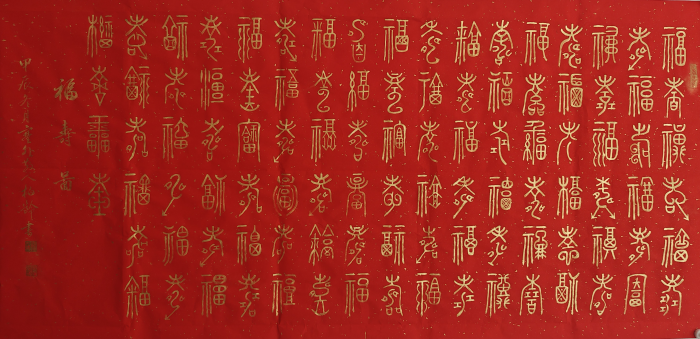 福壽福壽福壽
壽福壽福壽福
福壽福壽福壽
壽福壽福壽福
福壽福壽福壽
壽福壽福壽福
福壽福壽福壽
壽福壽福壽福
福壽福壽福壽
壽福壽福壽福
福壽福壽福壽
壽福壽福壽福
福壽福壽福壽
壽福壽福壽福
福壽福壽福壽
壽福壽福壽福
福壽福壽
福壽圖
甲辰